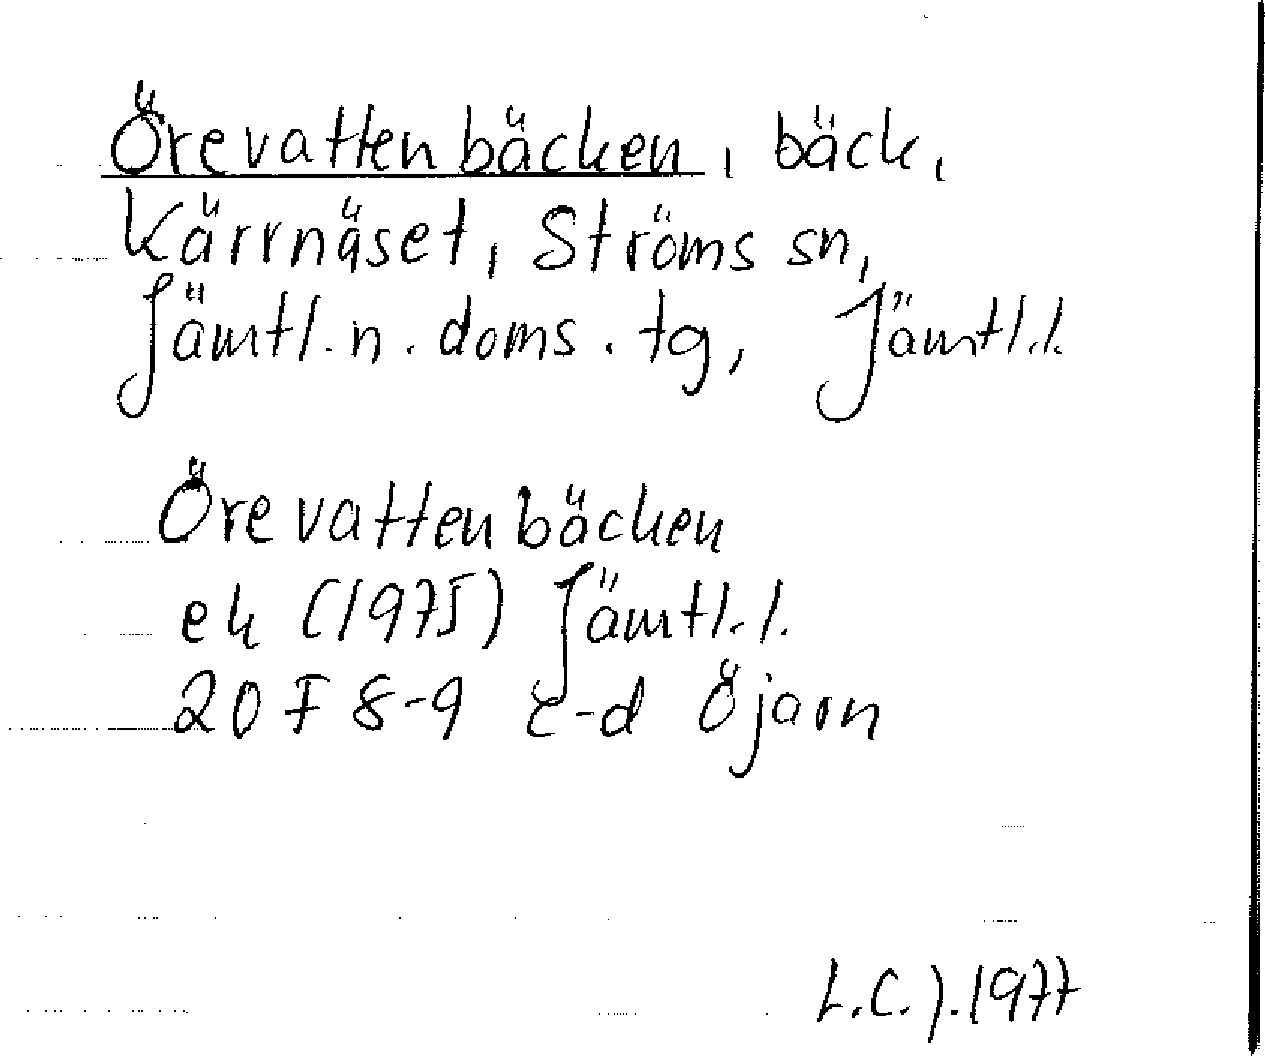 Örevattenbäcken, bäck,
Kärrnäset, Ströms sn,
Jämtl.n.doms.tg, Jämtl.l.
Örevattenbäcken
ek (1975) Jämtl.l.
20 F 8-9 c-d Öjarn
L.C.J.1977